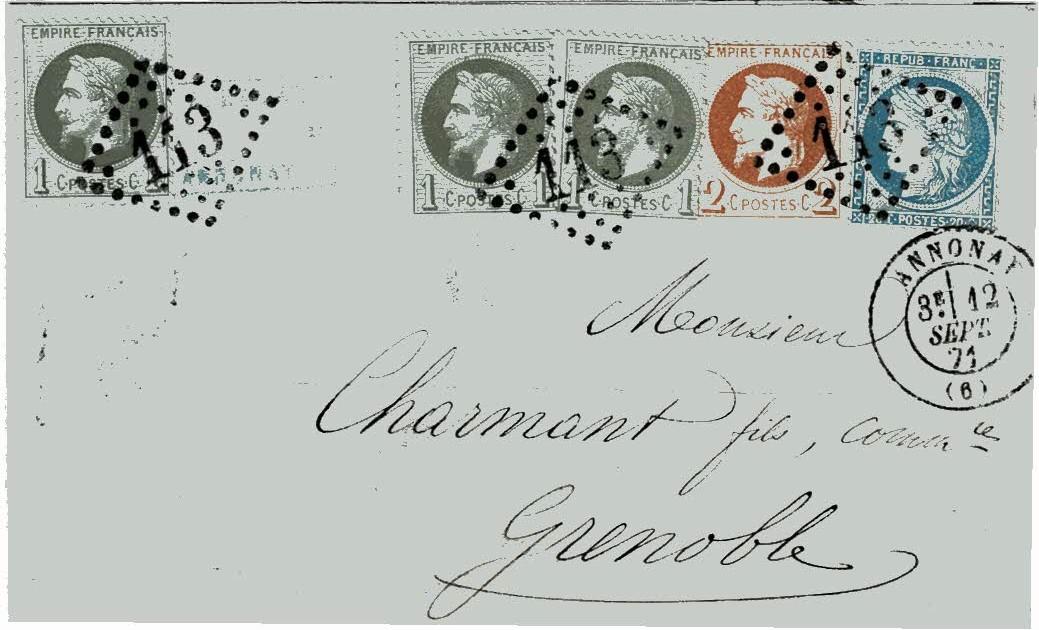 EMPIRE FRANÇAIS
1 C POSTES C 1
113
ANNONAY
EMPIRE FRANÇAIS
1 C POSTES C 1
EMPIRE FRANÇAIS
1 C POSTES C 1
113
EMPIRE FRANÇAIS
2 C POSTES C 2
REPUB FRANC
20 C POSTES 20 C
113
ANNONAY
3E 12
SEPT
71
(6)
Monsieur
Charmant fils, comm ce
Grenoble